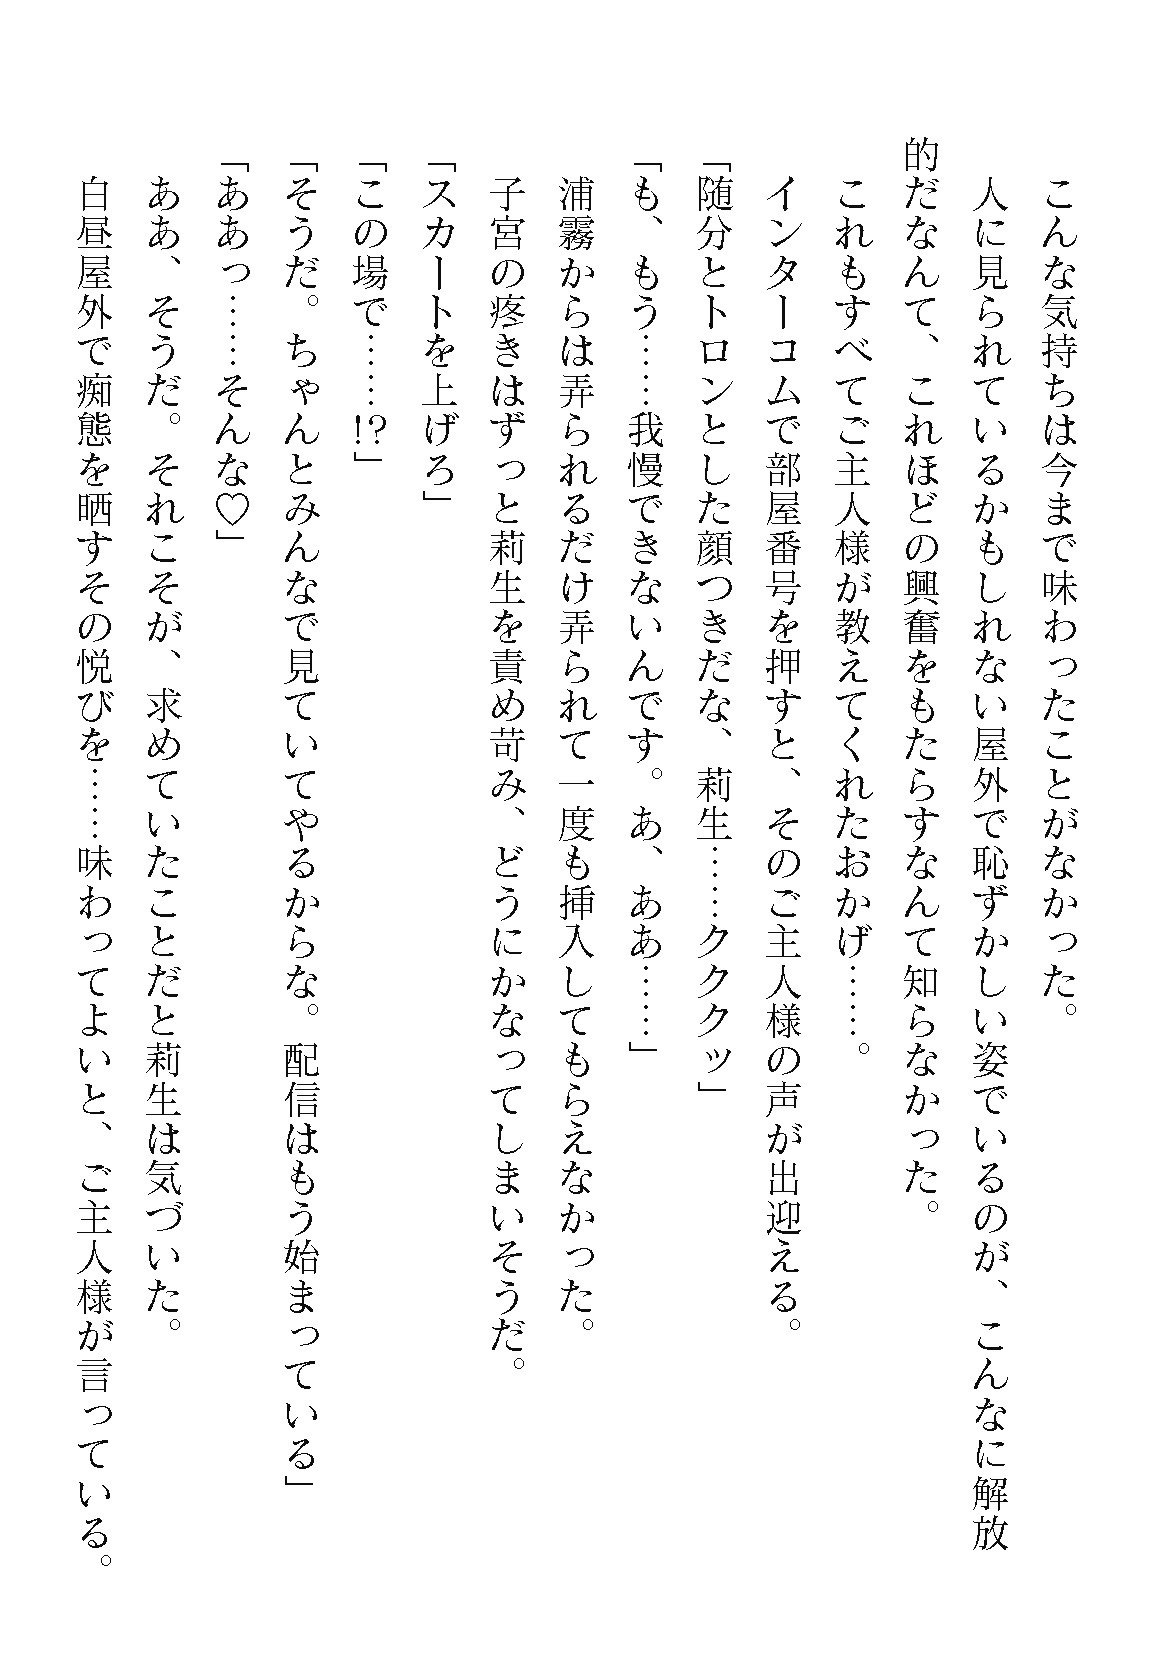 こんな気持ちは今まで味わったことがなかった。
人に見られているかもしれない屋外で恥ずかしい姿でいるのが、こんなに解放
的だなんて、これほどの興奮をもたらすなんて知らなかった。
これもすべてご主人様が教えてくれたおかげ……。
インターコムで部屋番号を押すと、そのご主人様の声が出迎える。
「随分とトロンとした顔つきだな、莉生……クククッ」
「も、もう……我慢できないんです。あ、ああ……」
浦霧からは弄られるだけ弄られて一度も挿入してもらえなかった。
子宮の疼きはずっと莉生を責め苛み、どうにかなってしまいそうだ。
「スカートを上げろ」
「この場で……!?」
「そうだ。ちゃんとみんなで見ていてやるからな。配信はもう始まっている」
「ああっ……そんな♡」
ああ、そうだ。それこそが、求めていたことだと莉生は気づいた。
白昼屋外で痴態を晒すその悦びを……味わってよいと、ご主人様が言っている。